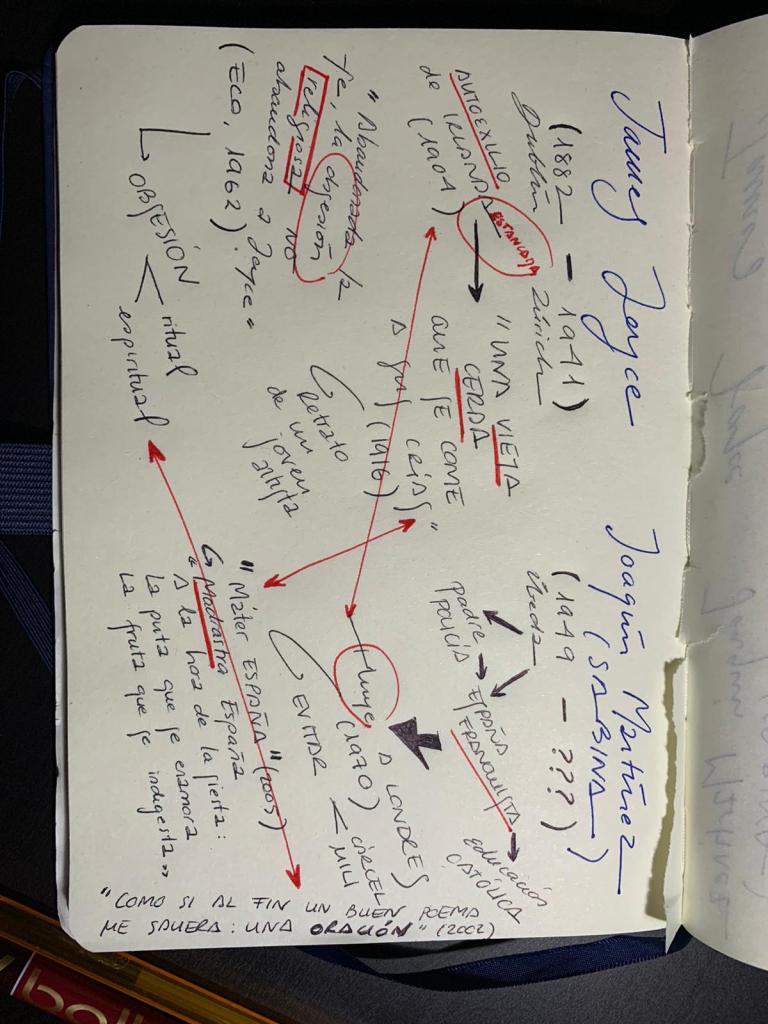 James Joyce
(1882 - 1941)
Dublín Zúrich
AUTOEXILIO
de IRLANDA
(1904)
ESTANCADA
"UNA VIEJA
CERDA
QUE SE COME
A SUS CRÍAS"
(1916)
Retrato
de un
joven
artista
"Abandonada la
fe, la obsesión
religiosa no
abandona a Joyce"
(Eco, 1962).
OBSESIÓN
ritual
espiritual
Joaquín Martínez
(SABINA)
(1949 - ???)
Úbeda
padre
policía
ESPAÑA
FRANQUISTA
educación
CATÓLICA
Huye A LONDRES
(1970)
CÁRCEL
MILI
EVITAR
"Máter ESPAÑA" (2005)
"Madrastra España
A la hora de la siesta:
La puta que se enamora
La fruta que se indigesta"
"COMO SI AL FIN UN BUEN POEMA
ME SALIERA: UNA ORACIÓN" (2002)